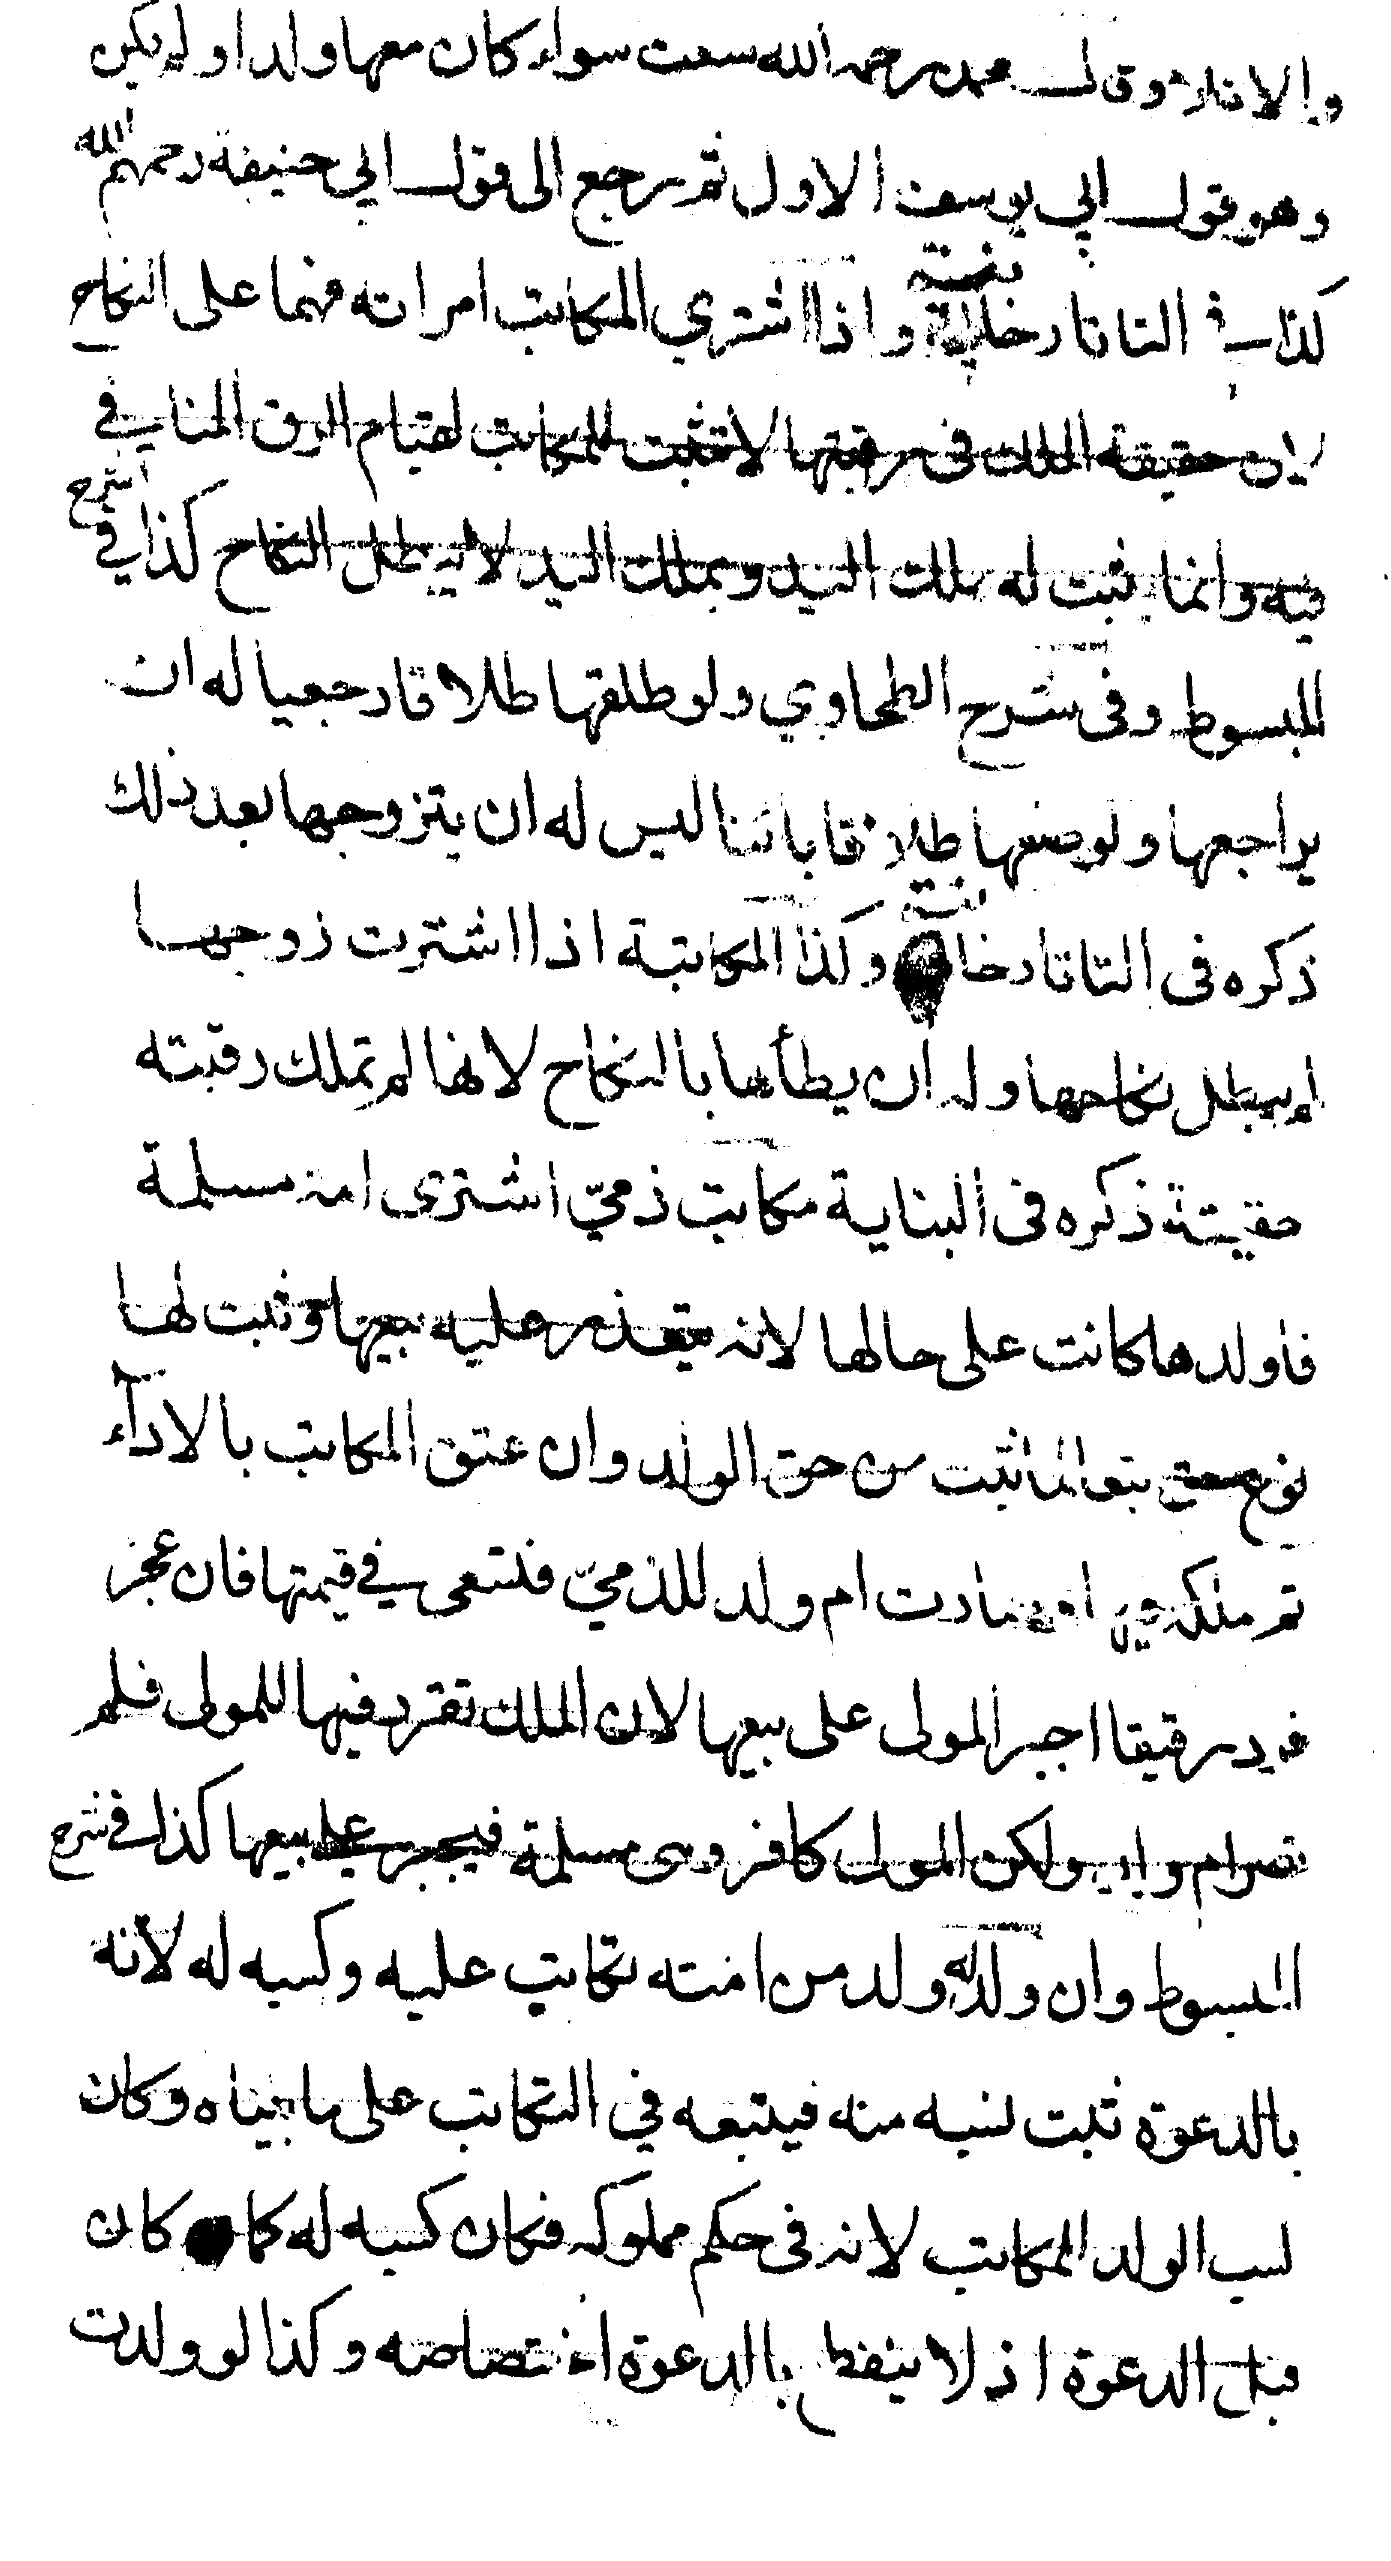 والا فلا وقال محمد رحمه الله سعت سواء كان معها ولد او لم يكن
وهو قول ابي يوسف الاول ثم رجع الى قول ابي حنيفة رحمهم الله
كذا في التاتارخانية واذا اشتري المكاتب امراته فهما على النكاح
لان حقيقة الملك في رقبتها لا تثبت للمكاتب لقيام الرق المنافي
فيه وانما يثبت له ملك اليد وبملك اليد لا يبطل النكاح كذا في شرح
المبسوط وفي شرح الطحاوي ولو طلقها طلاقا رجعيا له ان
يراجعها ولو طلقها طلاقا بائنا ليس له ان يتزوجها بعد ذلك
ذكره في التاتارخانية وكذا المكاتبة اذا اشترت زوجها
لم يبطل نكاحها وله ان يطأها بالنكاح لانها لم تملك رقبته
حقيقة ذكره في البناية مكاتب ذمي اشترى امة مسلمة
فاولدها كانت على حالها لانه يتعذر عليه بيعها وثبت لها
نوع حق تبعا لما ثبت من حق الولد وان عتق المكاتب بالاداء
تم ملكه فيها وصارت ام ولد للذمي فتسعى في قيمتها فان عجز
فرد رقيقا اجبر المولى على بيعها لان الملك تقرر فيها للمولى فلم
تصر ام ولد ولكن المولى كافر وهي مسلمة فيجبر على بيعها كذا في شرح
المبسوط وان ولد له ولد من امته تكاتب عليه وكسبه له لانه
بالدعوة ثبت نسبه منه فيتبعه في التكاتب على ما بيناه وكان
كسب الولد للمكاتب لانه في حكم مملوكه فكان كسبه له كما كان
قبل الدعوة اذ لا ينقطع بالدعوة اختصاصه وكذا لو ولدت